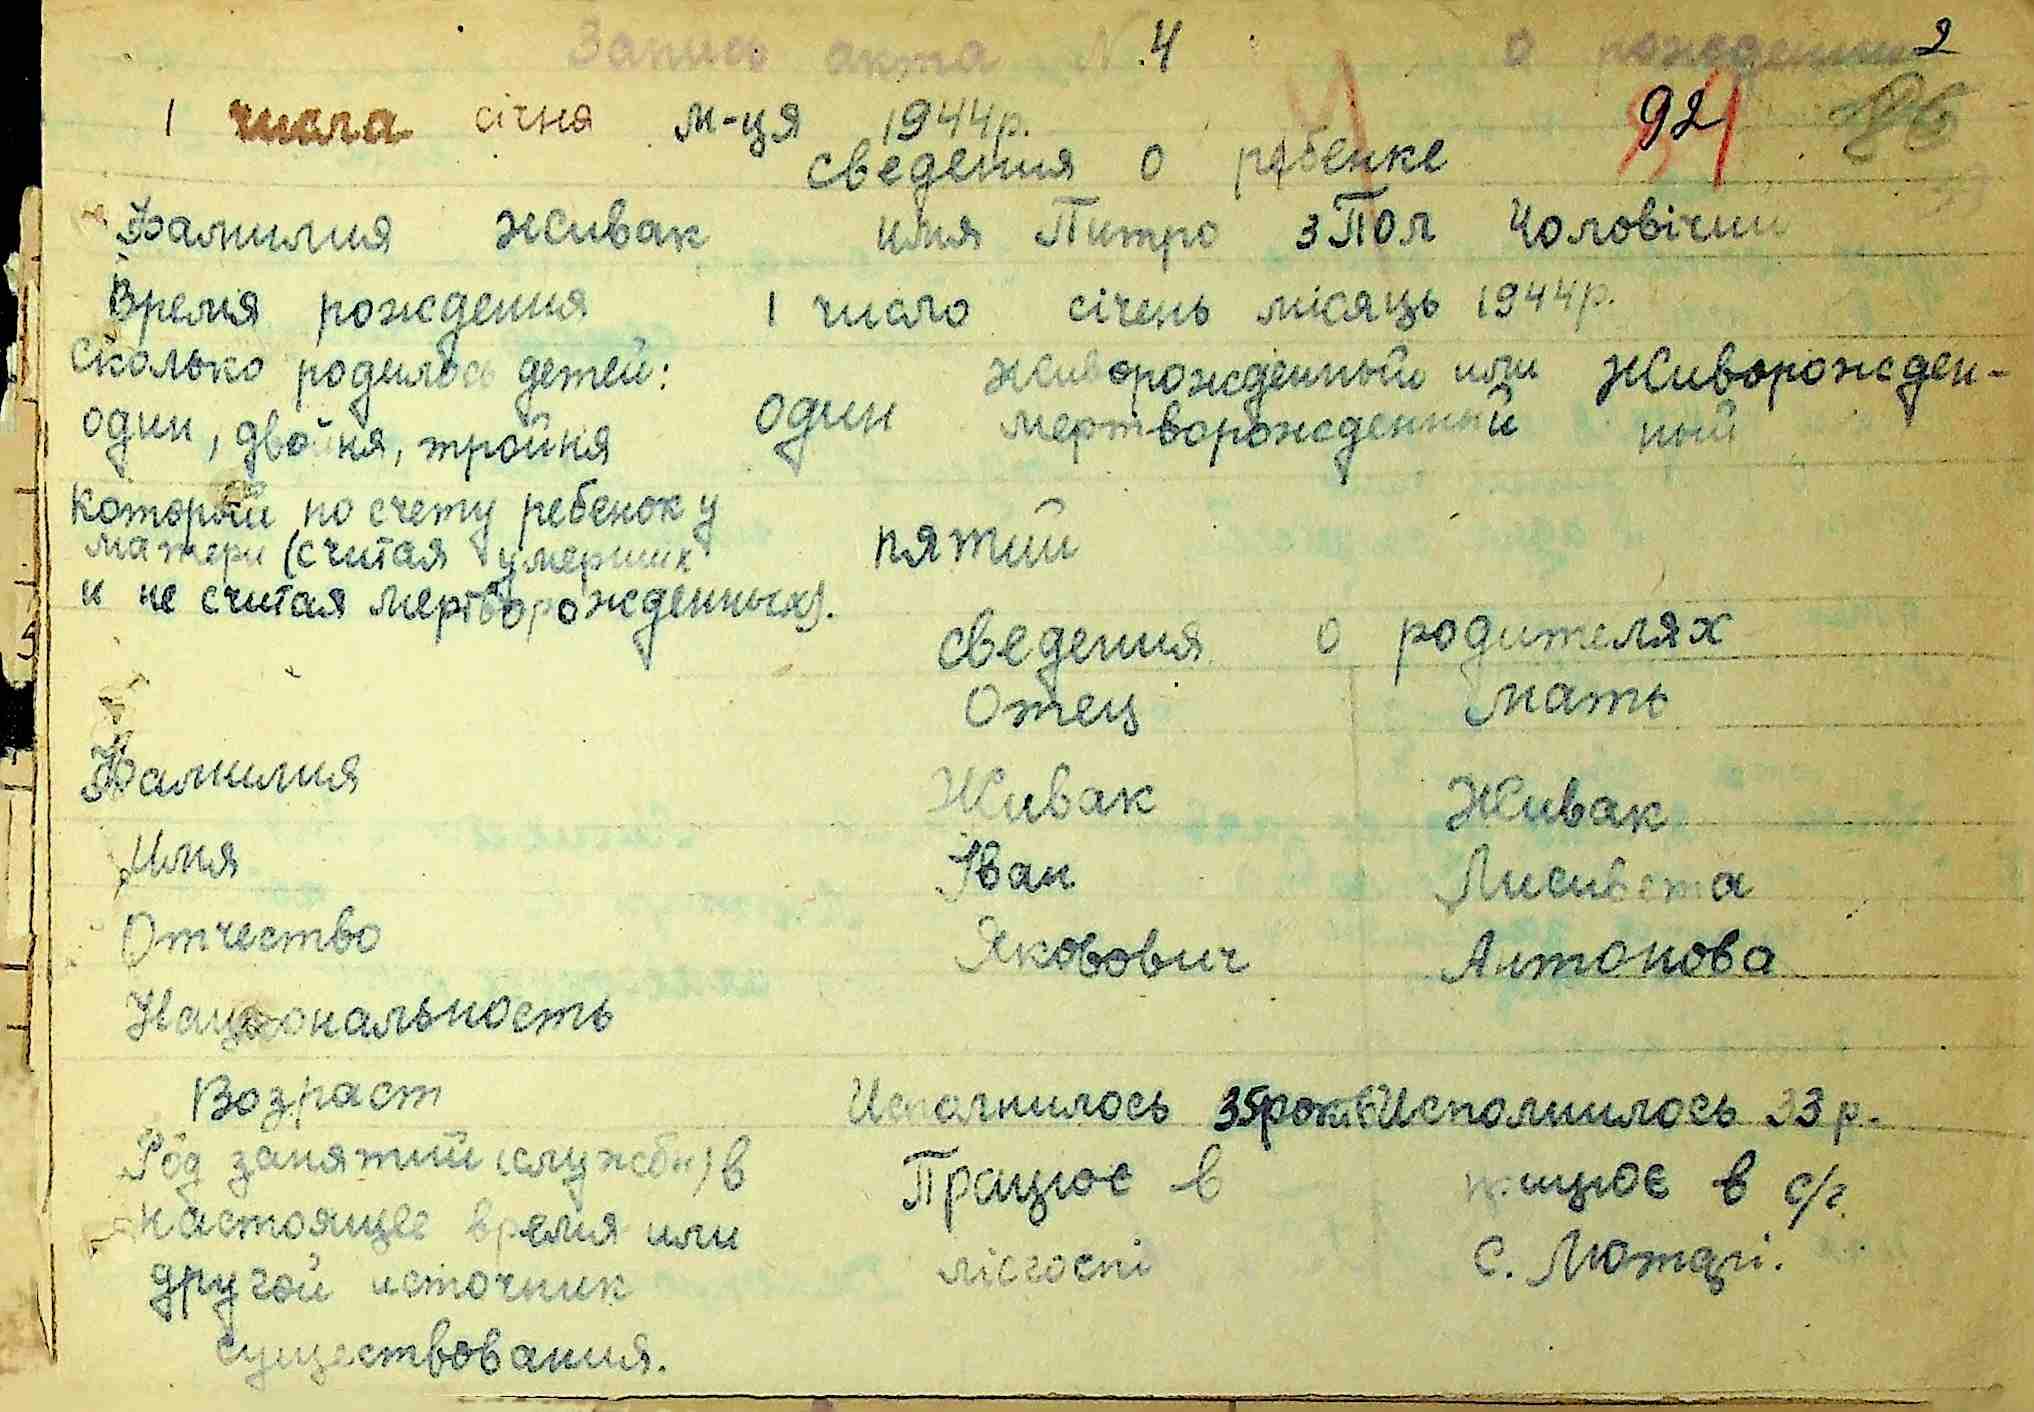 Запись акта N 4 о рождении 2
1 числа січня м-ця 1944р. 92
сведения о ребенке
Фамилия Живак имя Питро 3 Пол Чоловічий
Время рождения 1 число січень місяць 1944р.
Сколько родилось детей: живорожденный или Живорожден-
один, двойня, тройня один мертворожденный ный
который по счету ребенок у
матери (считая умерших пятий
и не считая мертворожденных).
сведения о родителях
Отец мать
Фамилия Живак Живак
Имя Іван Лисивета
Отчество Яковович Антонова
Национальность
Возраст Исполнилось 35 років Исполнилось 33 р.
Род занятий (службы) в Працює в працює в с/г
настоящее время или
другой источник лісгоспі с. Мотдгі.
существования.